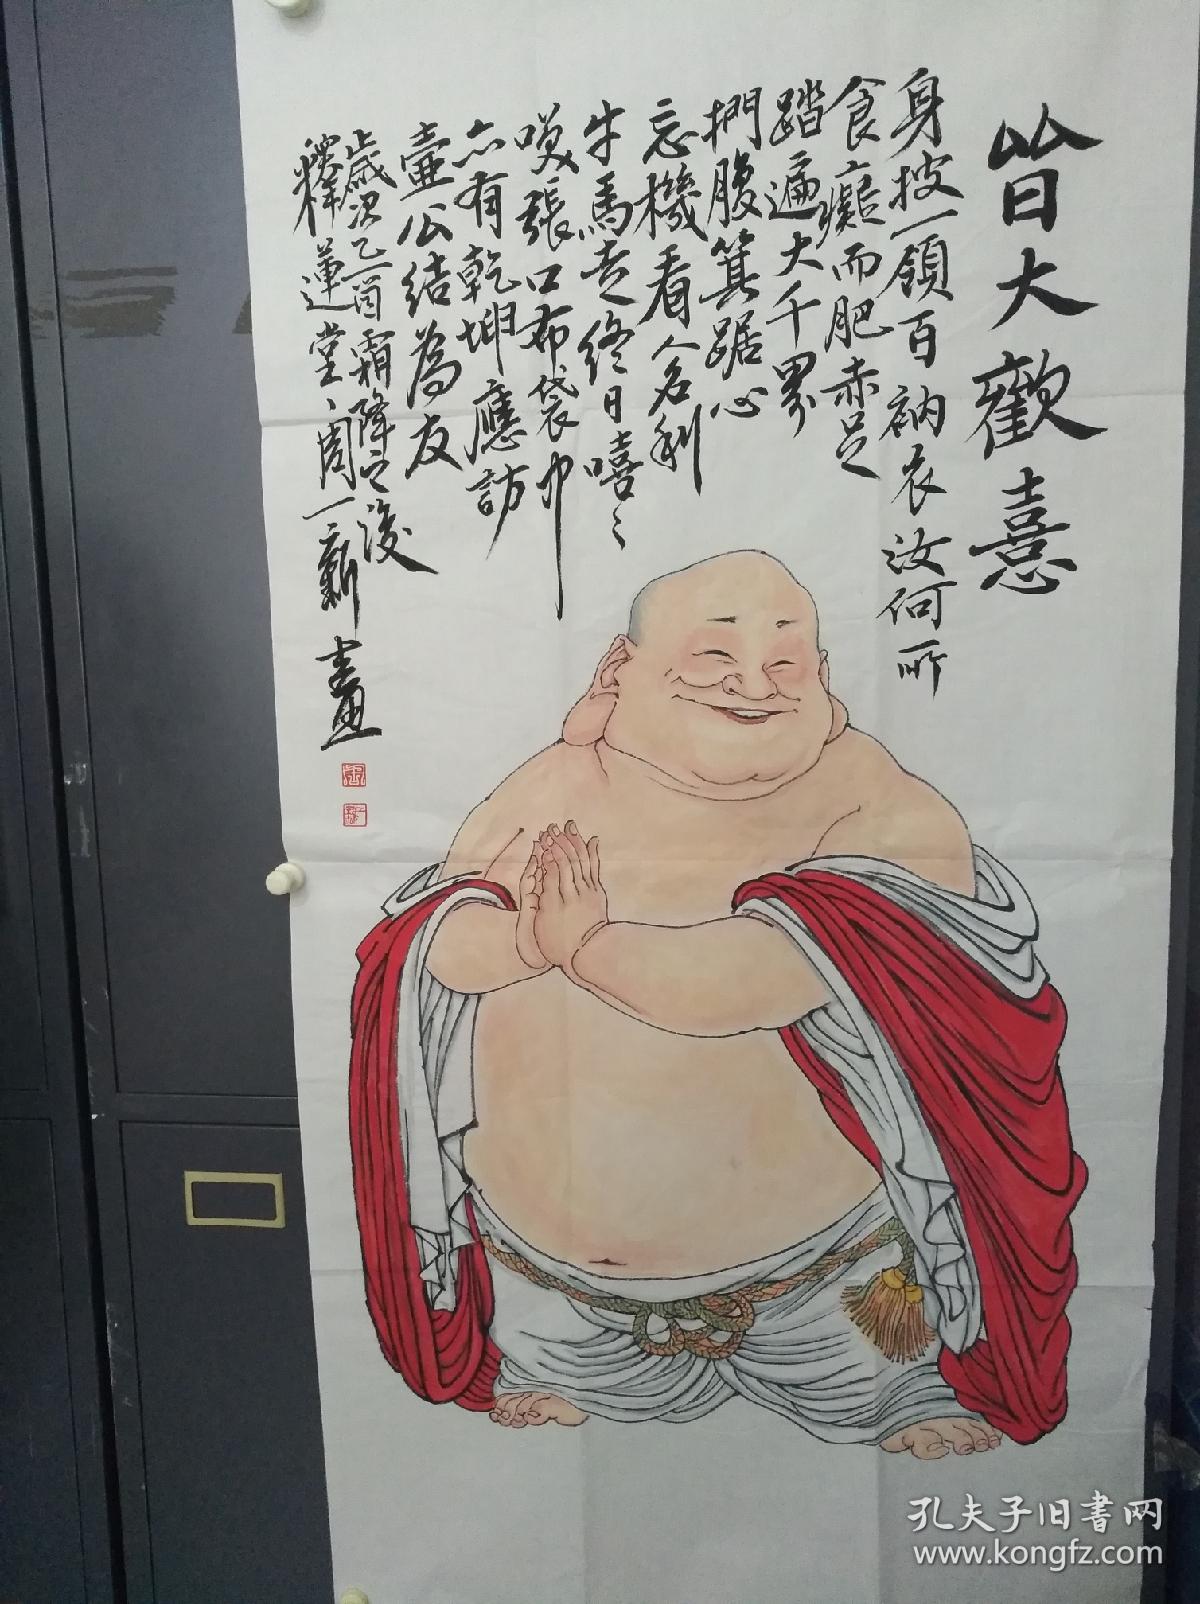 皆大歡喜
身披一領百衲衣汝何所
食癡而肥赤足
踏遍大千界
捫腹箕踞心
忘機看人名利
牛馬走終日嘻々
嘆張口布袋中
亦有乾坤應訪
壷公結為友
歲次乙酉霜降之後
釋蓮堂周一新畫
孔夫子旧书网
www.kongfz.com